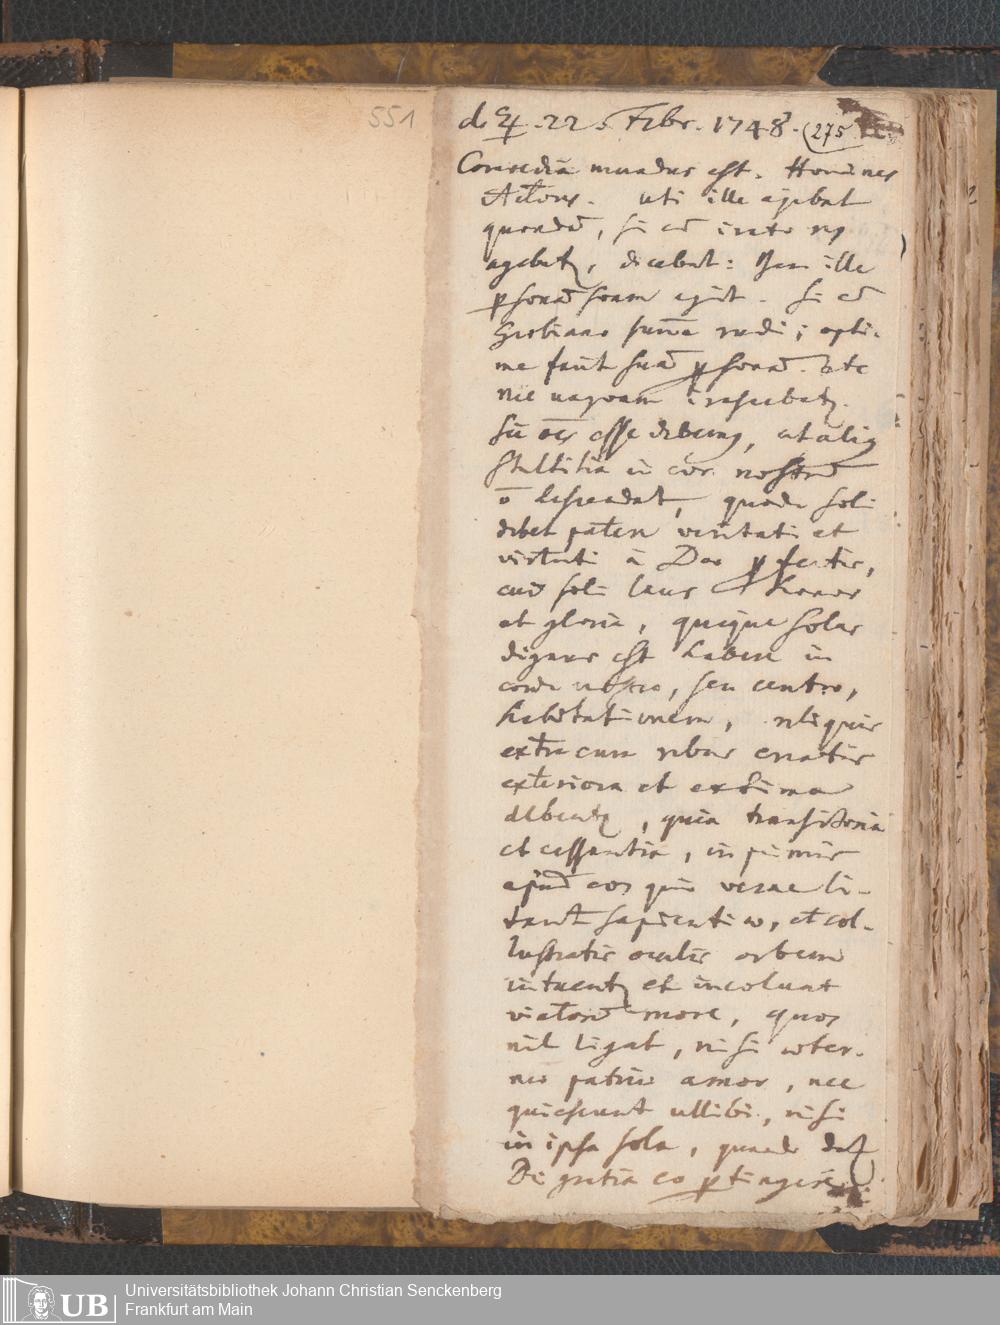 551
d. ♃. 22. Febr. 1748. (275
Comoedia mundus est. Homines
Actores. uti ille ajebat
quondā, si cū irato
agebatꝛ, dicebat: Jam ille
ꝑsonā suam egit. si cū
Grobiano summe rudi; opti-
me facit suā ꝑsonā. atꝗ
nunquam irascebatꝛ.
Sic oēs esse debemꝰ, ut aliꝗ
stultitia in cor nostrū
ō descendat, quod soli
debet patere veritati et
virtuti à Deo ꝑfectis,
cui soli laus et honor
et gloria, quique solus
dignus est habere in
corde nostro, seu centro,
habitationem, reliquis
extra cum rebus creatis
exteriora et extima
debentꝛ, quia transitoria
et cessantia, in primis
apud eos qui verae li-
tant sapientiae, et col-
lustratis oculis orbem
intuentꝛ et incolunt
viatorū more, quos
nil ligat, nisi aeter-
nae patriae amor, nec
quiescunt ullibi, nisi
in ipsa sola, quando datꝛ
Dei gratia eo ꝑtingere.
UB Universitätsbibliothek Johann Christian Senckenberg
Frankfurt am Main